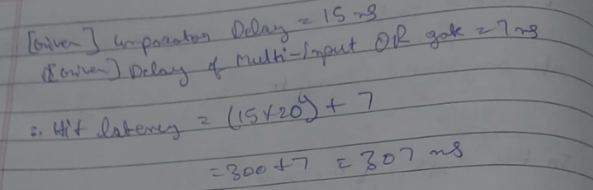 [Given] Comparator Delay = 15 ns
[Given] Delay of Multi-Input OR gate = 7 ns
∴ Hit latency = (15×20) + 7
= 300+7 = 307 ns